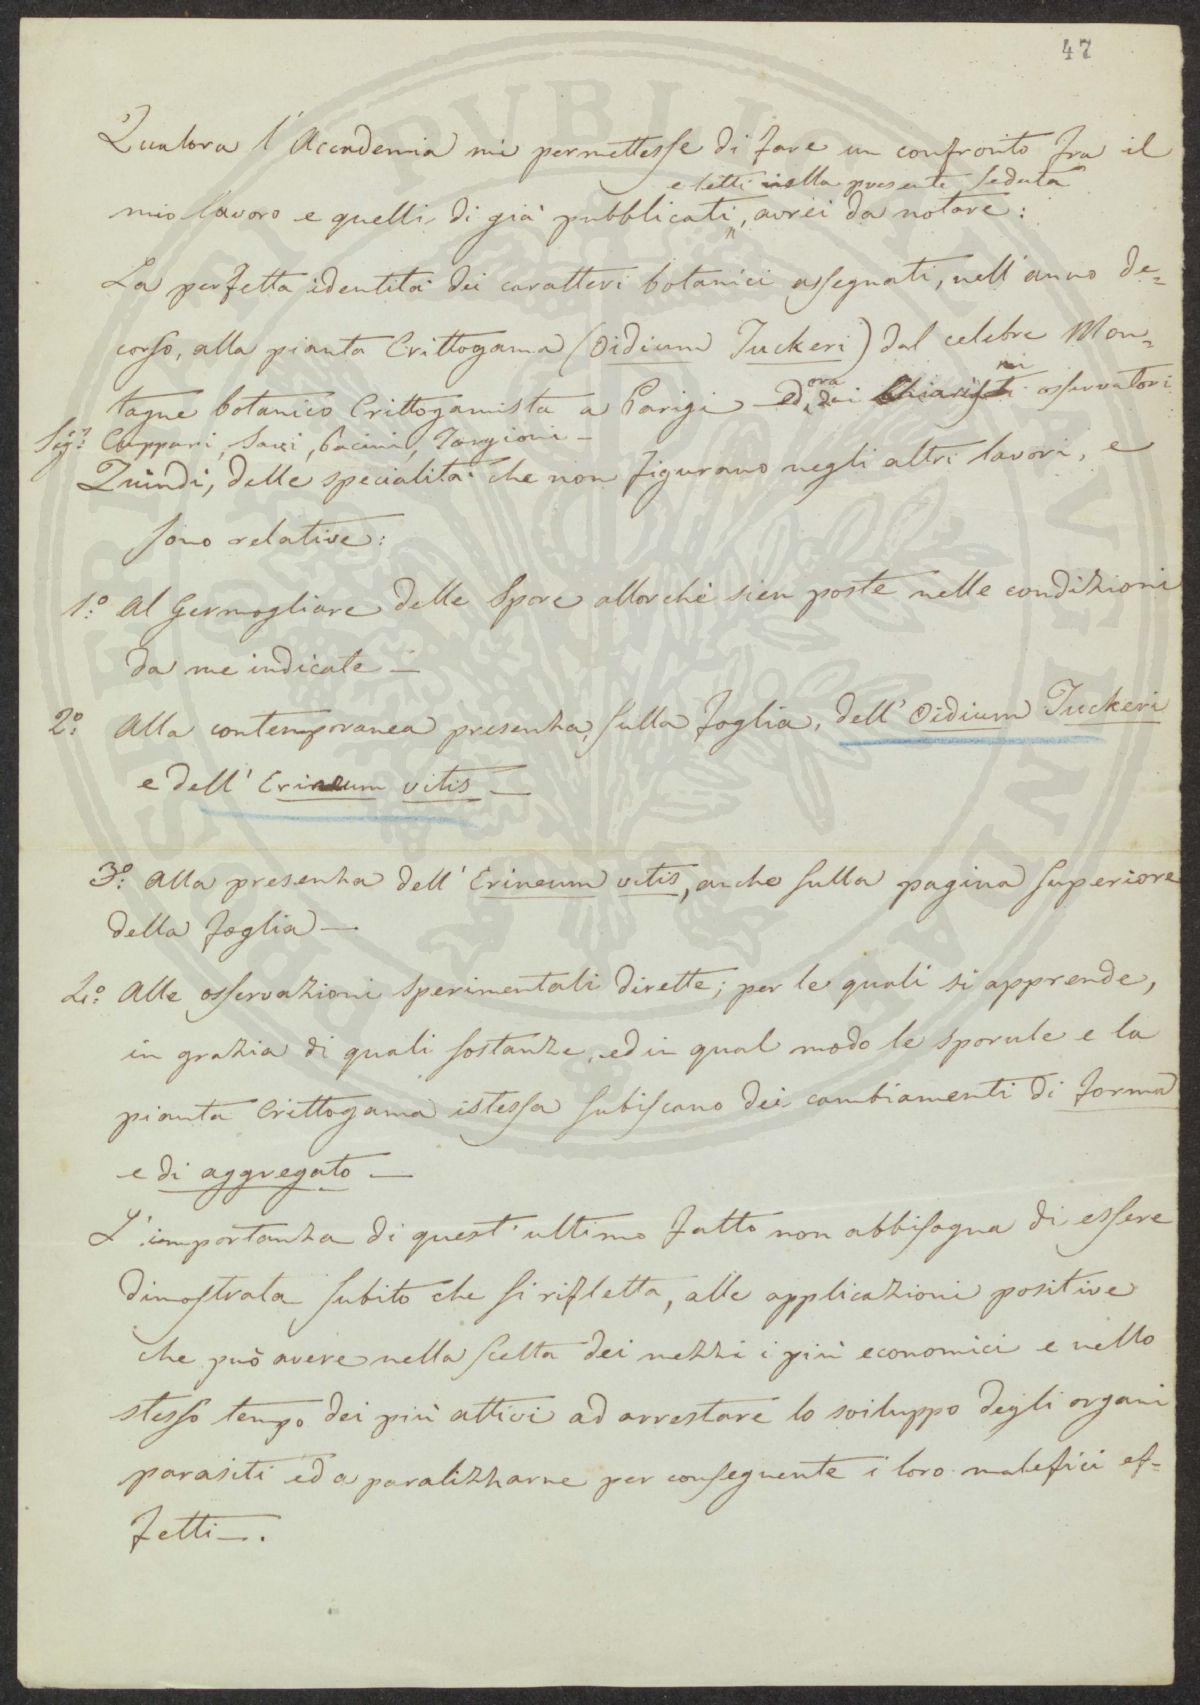 47
Qualora l'Accademia mi permettesse di fare un confronto fra il
e letti nella presente seduta
mio lavoro e quelli di già pubblicati, avrei da notare:
La perfetta identità dei caratteri botanici assegnati, nell'anno de=
corso, alla pianta Crittogama (Oidium Tuckeri) dal celebre Mon=
tagne botanico Crittogamista a Parigi ed, ora dai osservatori
Sigri Cuppari, Savi, Pacini, Targioni —
Quindi, delle specialità che non figurano negli altri lavori, e
sono relative:
1.° Al Germogliare delle Spore allorchè sien poste nelle condizioni
da me indicate —
2.° Alla contemporanea presenza, sulla foglia, dell'Oidium Tuckeri
e dell'Erineum vitis —
3.° Alla presenza dell'Erineum vitis, anche sulla pagina superiore
della foglia —
4.° Alle osservazioni sperimentali dirette; per le quali si apprende,
in grazia di quali sostanze, ed in qual modo le sporule e la
pianta Crittogama istessa subiscano dei cambiamenti di forma
e di aggregato —
L'importanza di quest'ultimo fatto non abbisogna di essere
dimostrata subito che si rifletta, alle applicazioni positive
che può avere nella scelta dei mezzi i più economici e nello
stesso tempo dei più attivi ad arrestare lo sviluppo degli organi
parasiti ed a paralizzarne per conseguente i loro malefici ef=
fetti —.